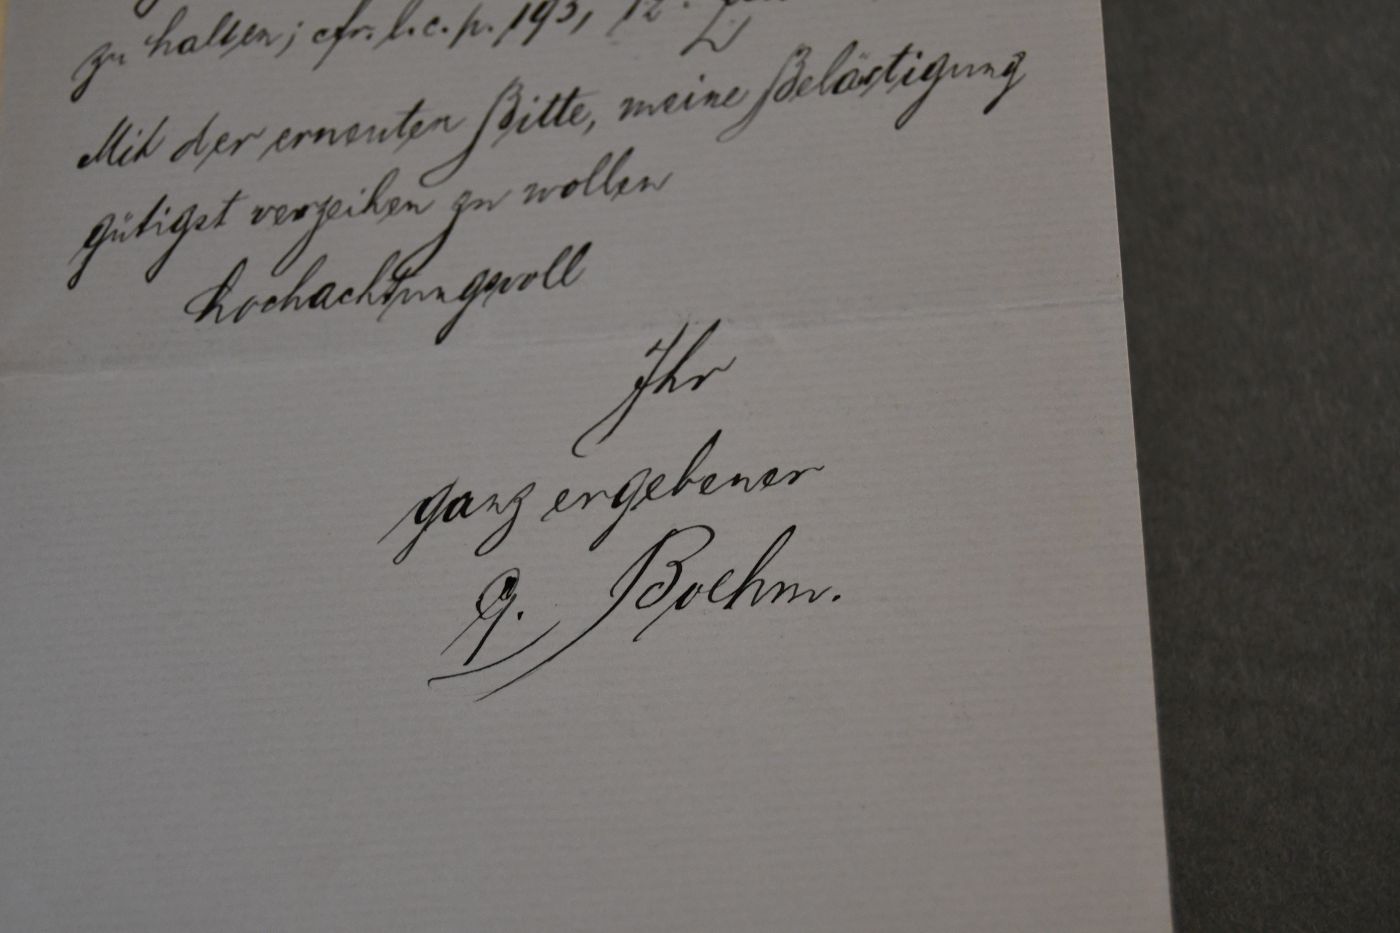 zu halten; cfr. l. c. p. 193, 12.
Mit der erneuten Bitte, meine Belästigung
gütigst verzeihen zu wollen
hochachtungsvoll
Ihr
ganz ergebener
G. Boehm.